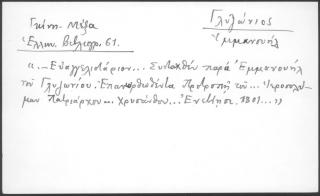 Γκίνη - Μέξα
Ελλην. Βιβλιογρ. 61.
Γλυζώνιος
Εμμανουήλ
«.- Ευαγγελιστάριον... Συνταχθέν παρά Εμμανουήλ
του Γλυζωνίου. Επανορθωθέντα Προτροπή του... Ιεροσολύ-
μων Πατριάρχου... Χρυσάνθου... Ενετίησι. 1801...»